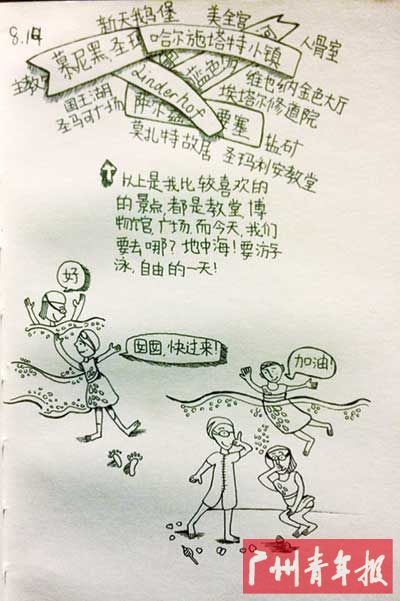 8.14
新天鹅堡
美全宫
人骨室
慕尼黑
圣玛
哈尔施塔特小镇
主教
蓝色
维也纳金色大厅
国王湖
Linderhof
埃塔尔修道院
圣马可广场
萨尔
要塞
盐矿
莫扎特故居
圣玛利安教堂
以上是我比较喜欢的
的景点,都是教堂 博
物馆 广场.而今天,我们
要去哪?地中海!要游
泳,自由的一天!
好
囡囡,快过来!
加油!
广州青年报